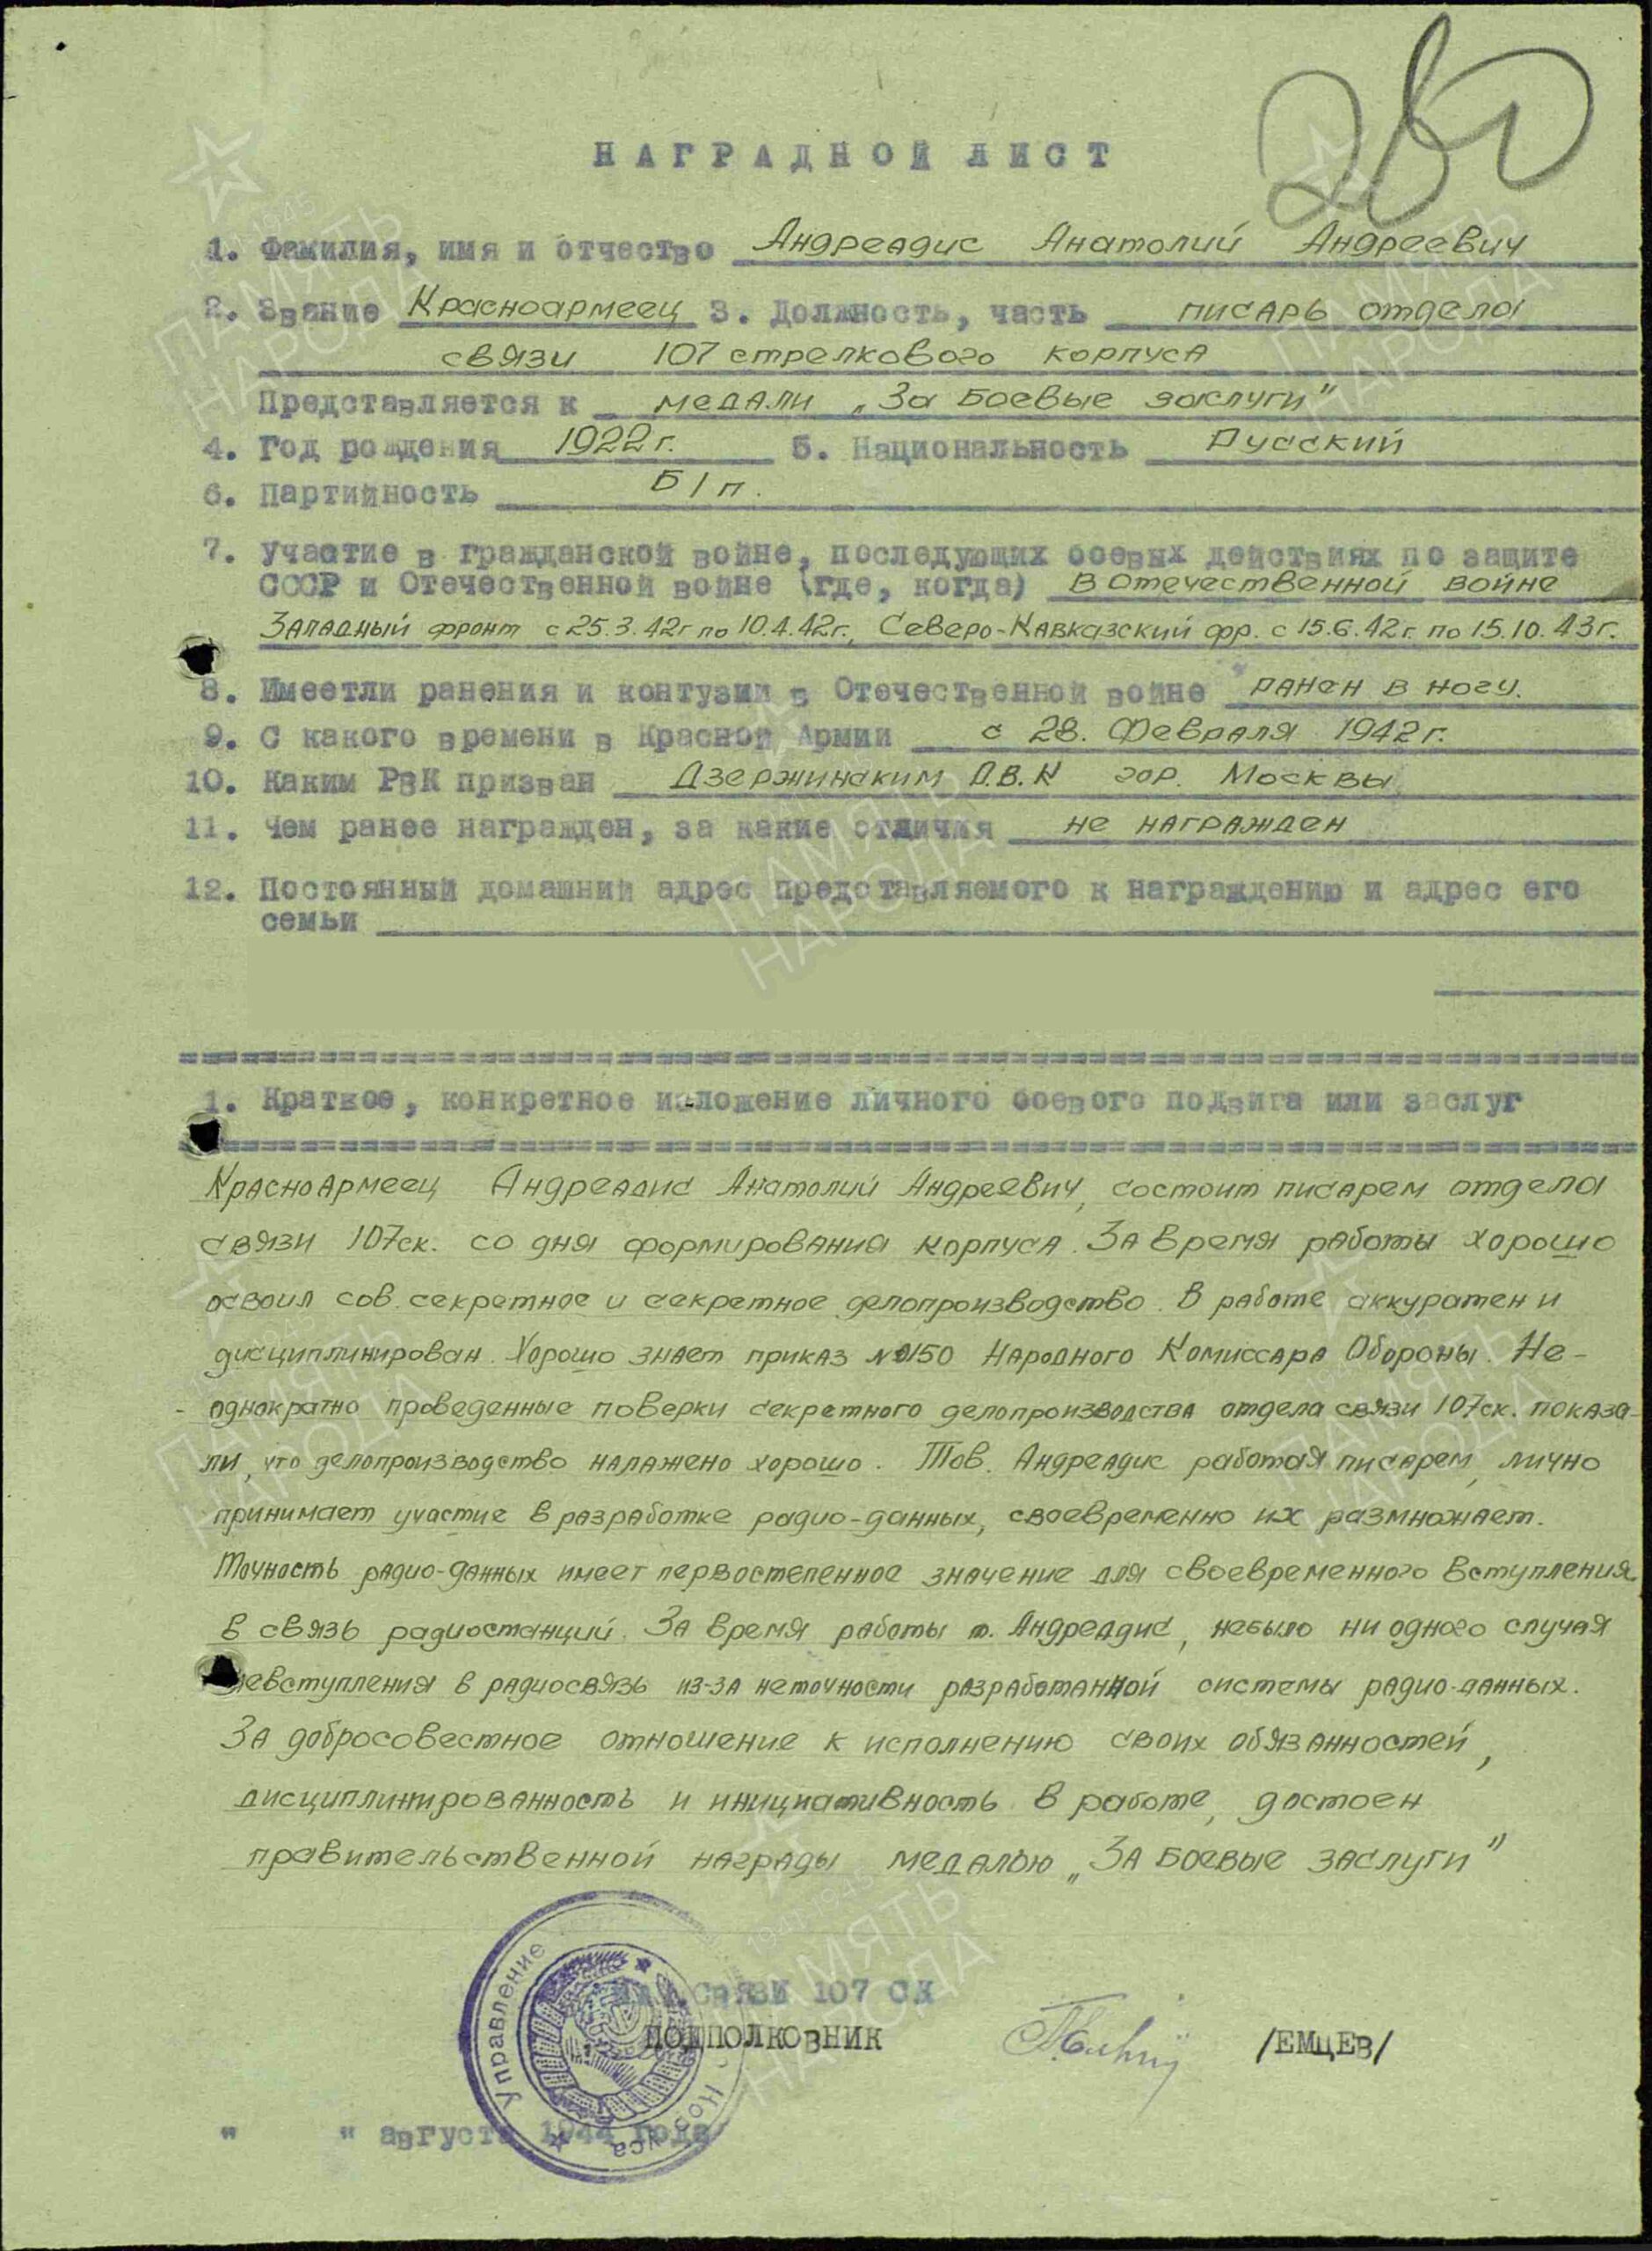 НАГРАДНОЙ ЛИСТ
1. Фамилия, имя и отчество Андреадис Анатолий Андреевич
2. Звание Красноармеец 3. Должность, часть писарь отдела
связи 107 стрелкового корпуса
Представляется к медали „За боевые заслуги"
4. Год рождения 1922 г. 5. Национальность Русский
6. Партийность Б/п.
7. Участие в гражданской войне, последующих боевых действиях по защите
СССР и Отечественной войне (где, когда) в отечественной войне
Западный фронт с 25.3.42г по 10.4.42г., Северо-Кавказский фр. с 15.6.42г. по 15.10.43г.
8. Имеетли ранения и контузии в Отечественной войне ранен в ногу.
9. С какого времени в Красной Армии с 28. Февраля 1942г.
10. Каким РВК призван Дзержинским Р.В.К гор. Москвы
11. Чем ранее награжден, за какие отличия не награжден
12. Постоянный домашний адрес представляемого к награждению и адрес его
семьи
1. Краткое, конкретное изложение личного боевого подвига или заслуг
Красноармеец Андреадис Анатолий Андреевич, состоит писарем отдела
связи 107ск. со дня формирования корпуса. За время работы хорошо
освоил сов. секретное и секретное делопроизводство. В работе аккуратен и
дисциплинирован. Хорошо знает приказ №0150 Народного Комиссара Обороны. Не-
однократно проведенные поверки секретного делопроизводства отдела связи 107ск. показа-
ли, что делопроизводство налажено хорошо. Тов. Андреадис работая писарем, лично
принимает участие в разработке радио-данных, своевременно их размножает.
Точность радио-данных имеет первостепенное значение для своевременного вступления
в связь радиостанций. За время работы т. Андреадис, небыло ни одного случая
невступления в радиосвязь из-за неточности разработанной системы радио-данных.
За добросовестное отношение к исполнению своих обязанностей,
дисциплинированность и инициативность в работе, достоен
правительственной награды медалью „За боевые заслуги"
НАЧ. СВЯЗИ 107 СК
ПОДПОЛКОВНИК /ЕМЦЕВ/
" " августа 1944 года
Управление Корпуса
ПАМЯТЬ НАРОДА
1941-1945